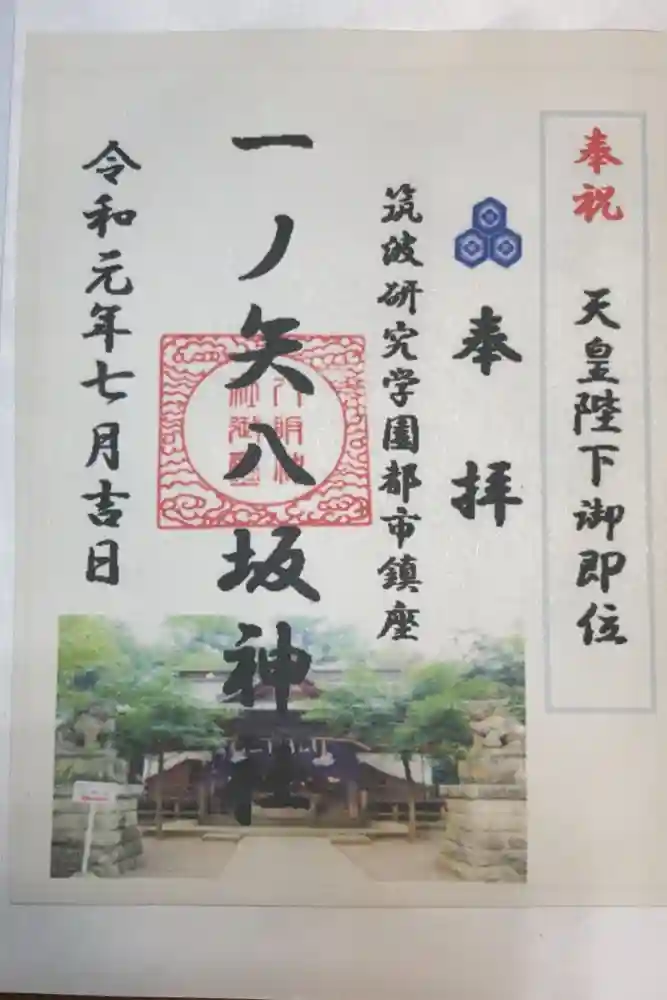 奉祝 天皇陛下御即位
奉拝
筑波研究学園都市鎮座
一ノ矢八坂神社
令和元年七月吉日